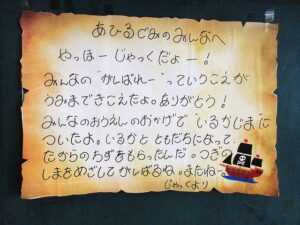 あひるぐみのみんなへ
やっほー じゃっくだよー！
みんなの"がんばれー"っていうこえが
うみまできこえたよ。ありがとう！
みんなのおうえんのおかげで"いるかじま"に
ついたよ。いるかと ともだちになって、
たからのちずをもらったんだ。つぎの
しまをめざしてがんばるね。またねー。
(じゃっくより)